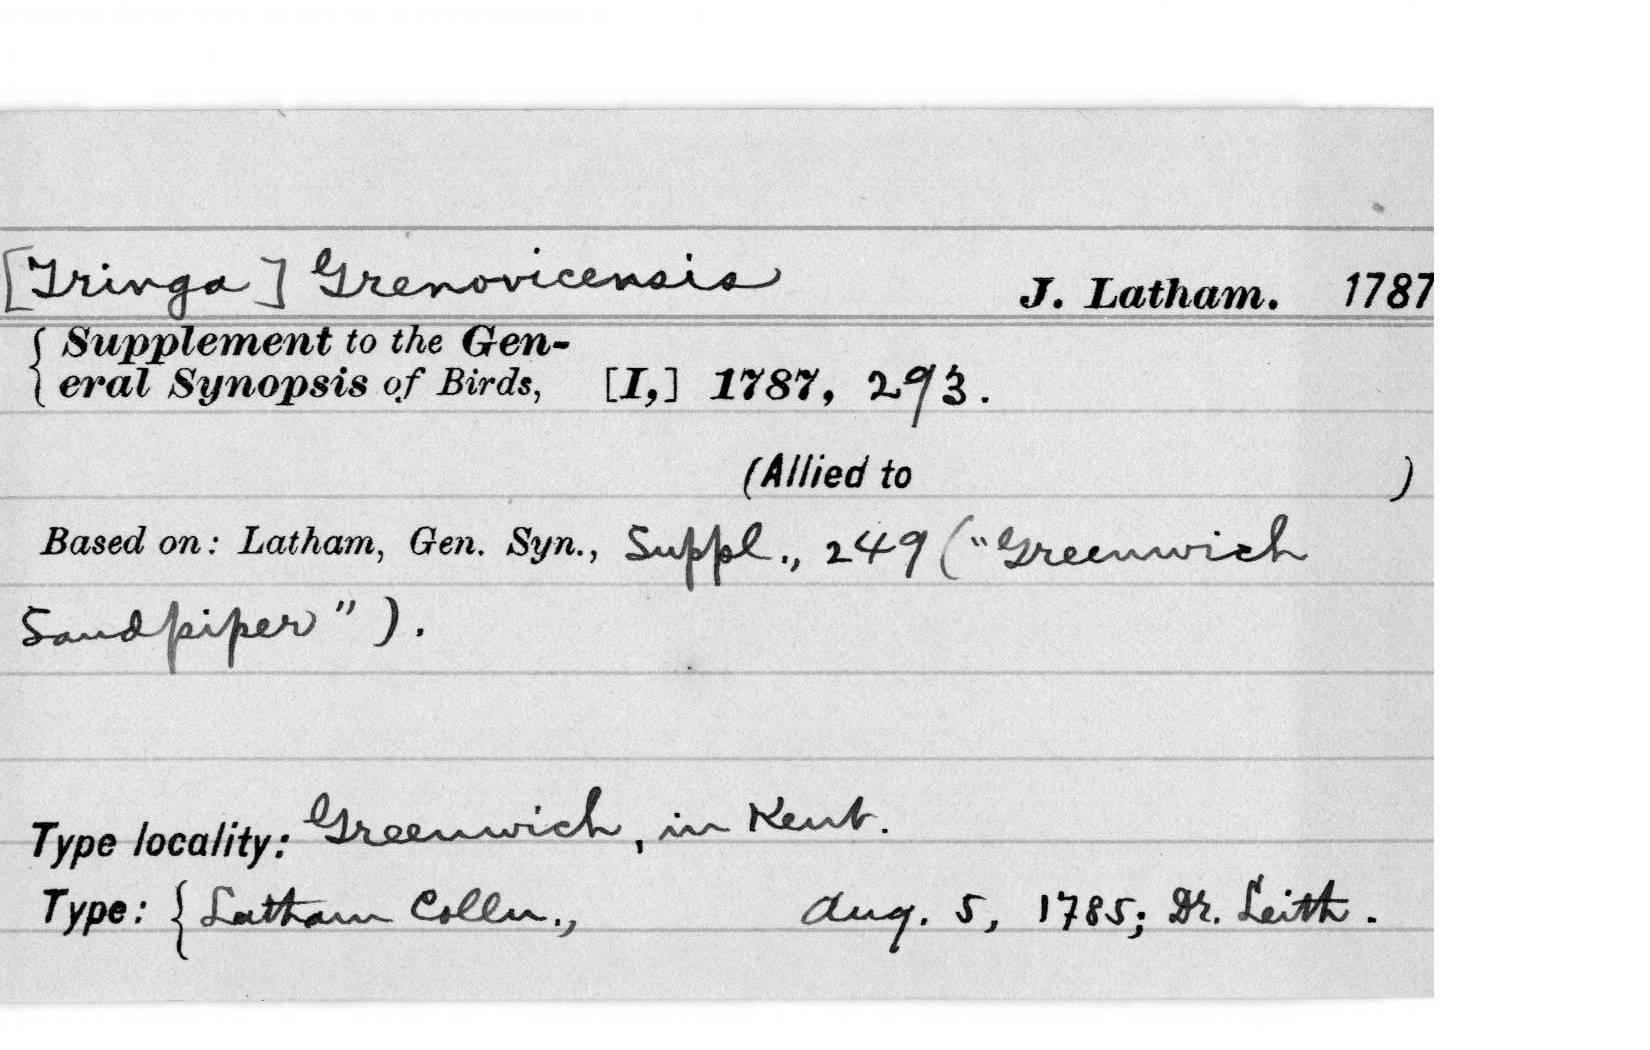 [Tringa] Grenovicensis J. Latham. 1787
{ Supplement to the Gen-
eral Synopsis of Birds, [I,] 1787, 293.
(Allied to )
Based on: Latham, Gen. Syn., Suppl., 249 ("Greenwich
Sandpiper").
Type locality: Greenwich, in Kent.
Type: { Latham Colln., Aug. 5, 1785; Dr. Leith.